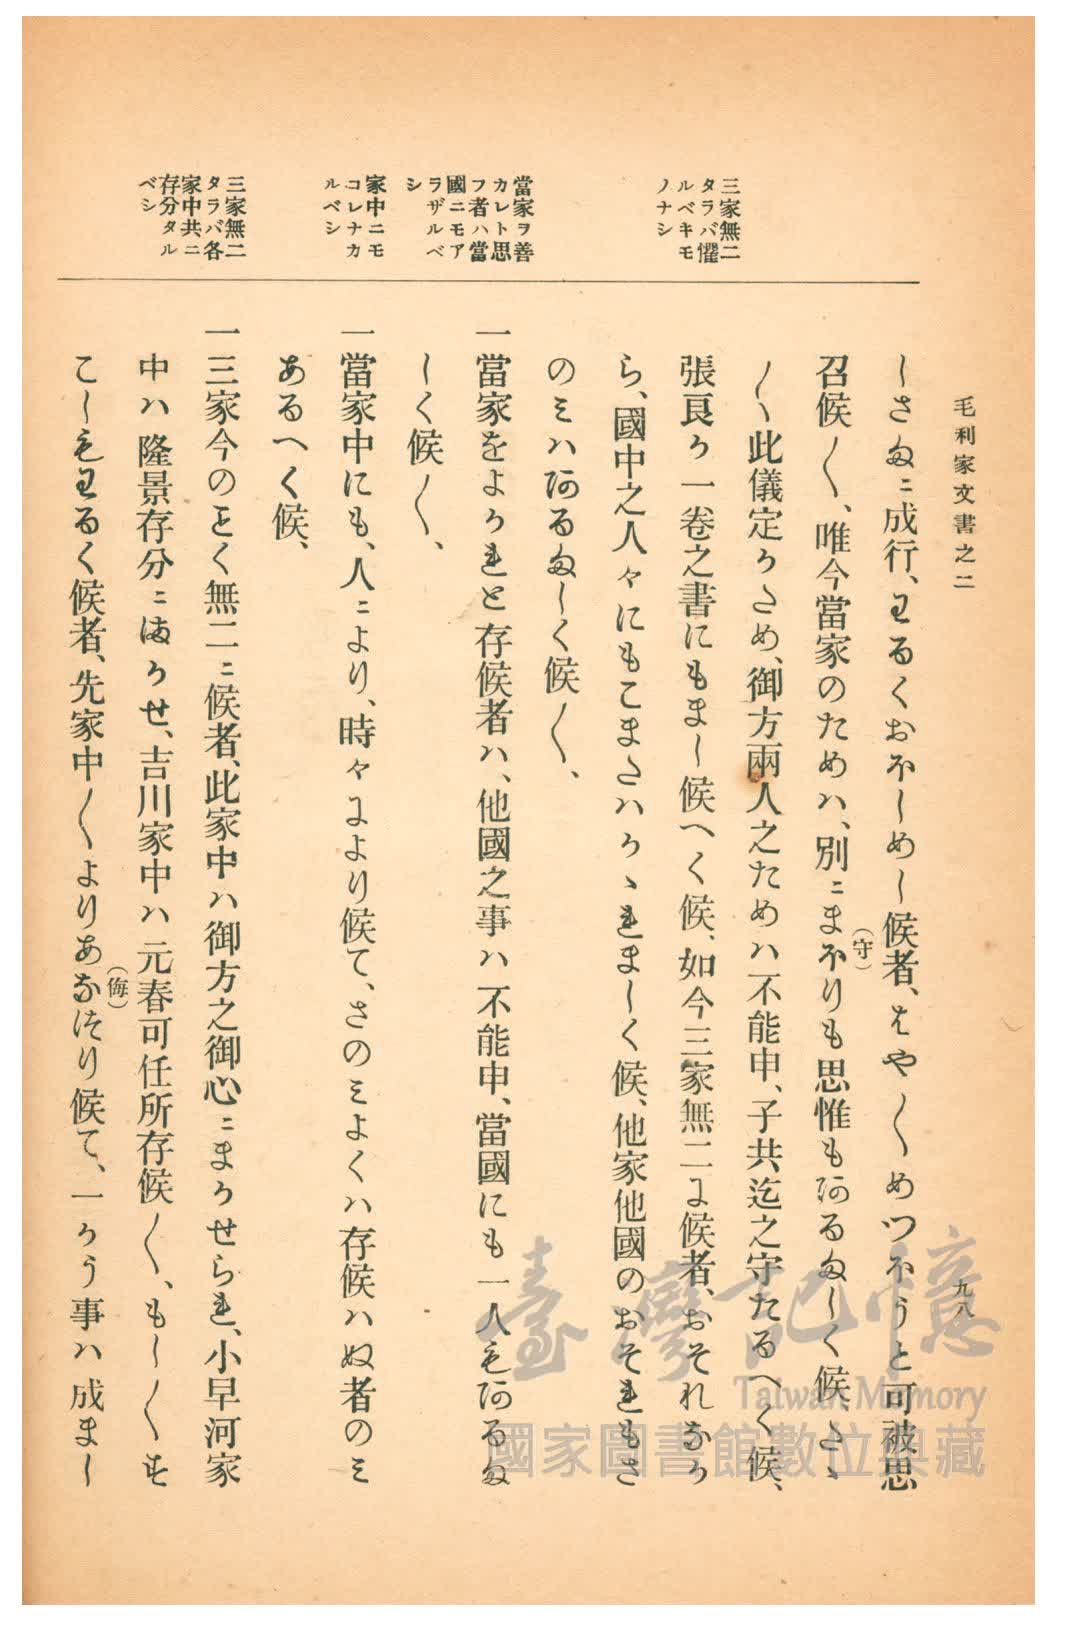 毛利家文書之二
九八
三家無二
タラバ懼
ルベキモ
ノナシ
當家ヲ善
カレト思
フ者ハ當
國ニモア
ラザルベ
シ
家中ニモ
コレナカ
ルベシ
三家無二
タラバ各
家中共ニ
存分タル
ベシ
しさぬニ成行、わるくおほしめし候者、はや〳〵めつほうと可被思
召候〳〵、唯今當家のためハ、別ニまほりも思惟もあるぬしく候、たゝ
(守)
〳〵此儀定かため、御方兩人之ためハ不能申、子共迄之守たるへく候、
張良か一卷之書にもまし候へく候、如今三家無二よ候者、おそれなか
ら、國中之人々にもこまたハかゝれましく候、他家他國のおそれもさ
のミハあるぬしく候〳〵、
一當家をよかれと存候者ハ、他國之事ハ不能申、當國にも一人もあるぬ
しく候〳〵、
一當家中にも、人ニより、時々により候て、さのミよくハ存候ハぬ者のミ
あるへく候、
一三家今のことく無二ニ候者、此家中ハ御方之御心ニまかせられ、小早河家
中ハ隆景存分ニまかせ、吉川家中ハ元春可任所存候〳〵、もし〳〵す
こしもわるく候者、先家中〳〵よりあなつり候て、一かう事ハ成まし
(侮)
臺灣記憶
Taiwan Memory
國家圖書館數位典藏